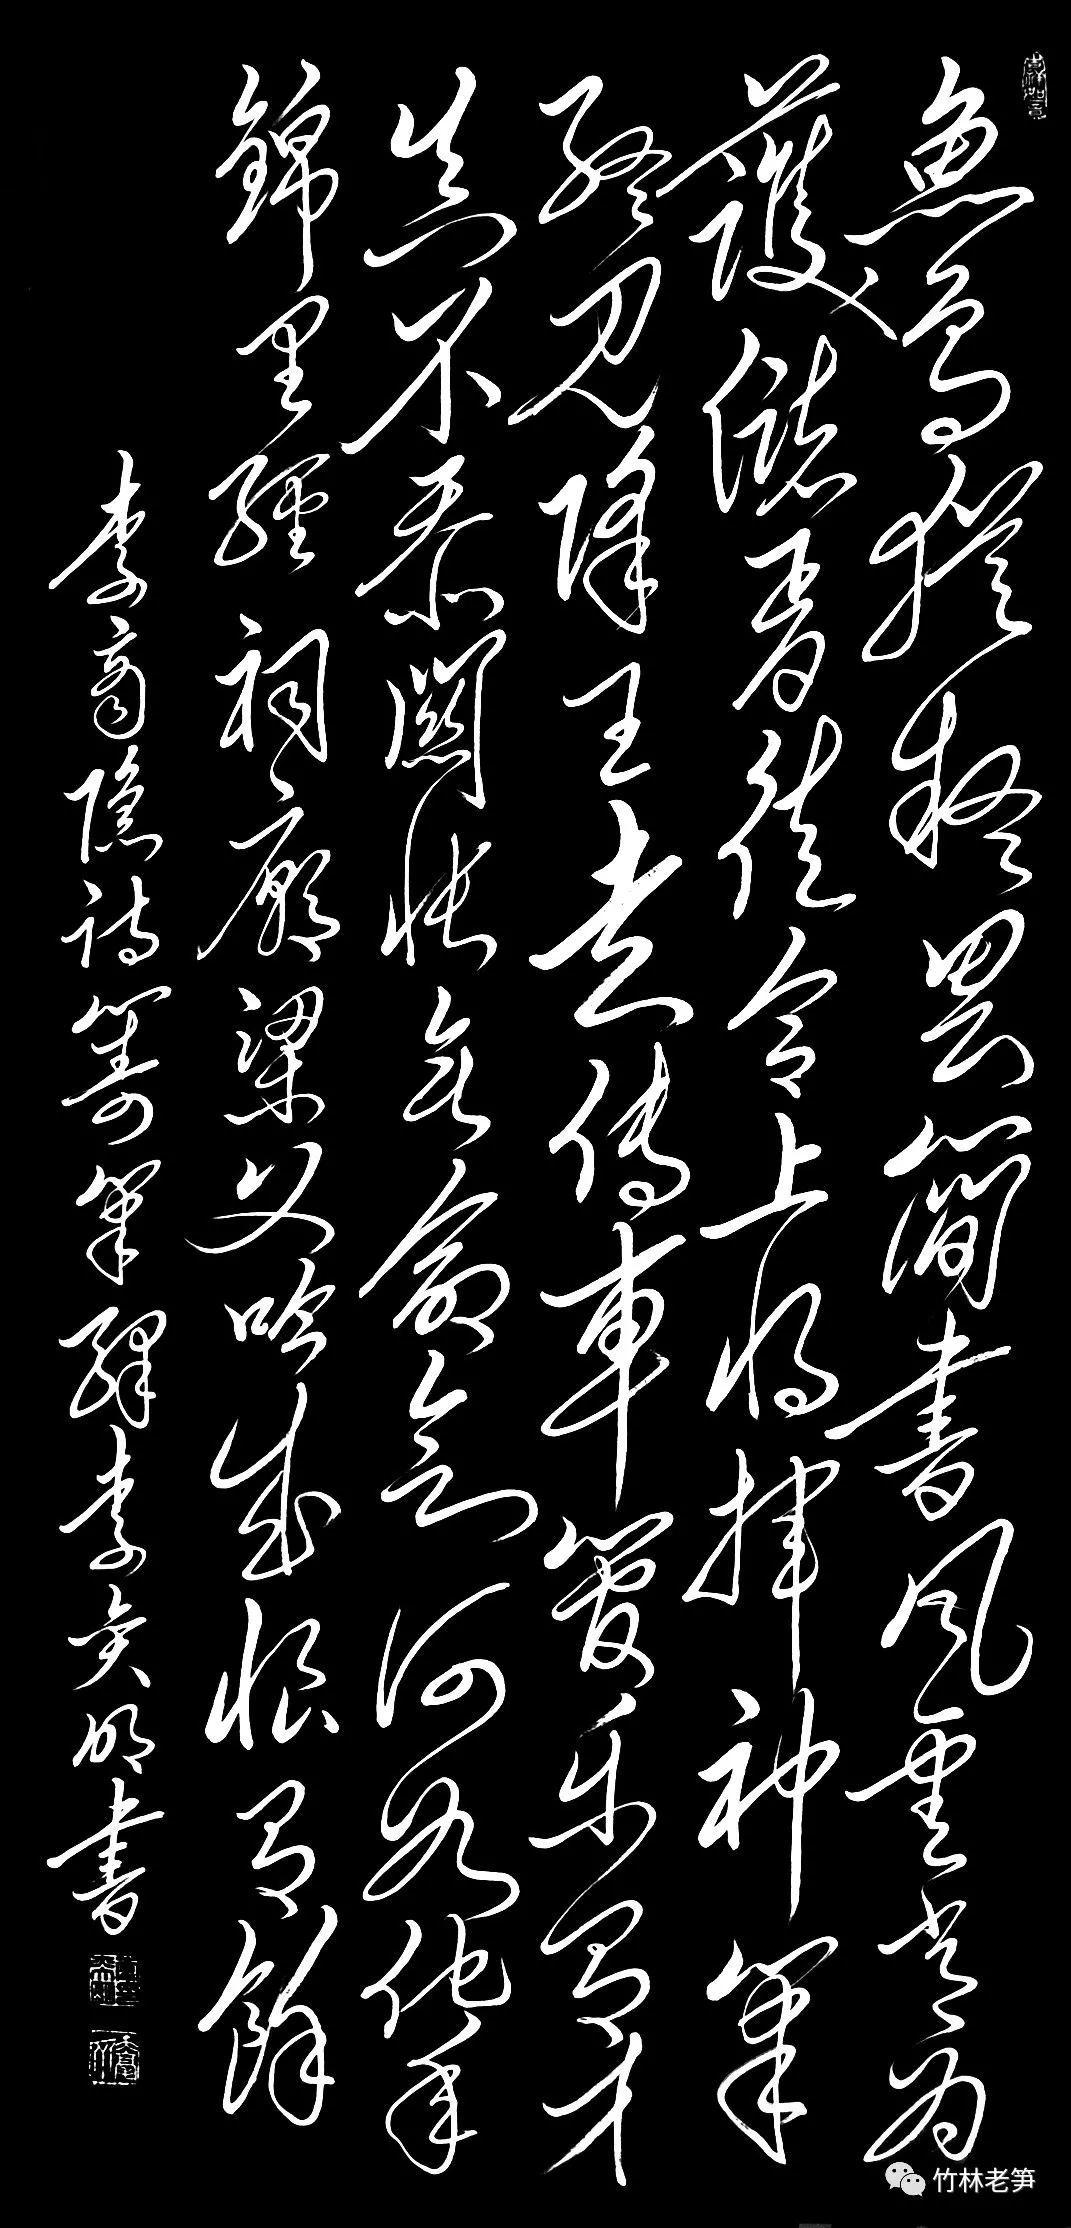 吉祥如意
魚鳥猶疑畏簡書風雲常為
護儲胥徒令上將揮神筆
終見降王走傳車管樂有才
真不忝關張無命欲何如他年
錦里經祠廟梁父吟成恨有餘
李商隱詩籌筆驛李奕明書
竹林老笋